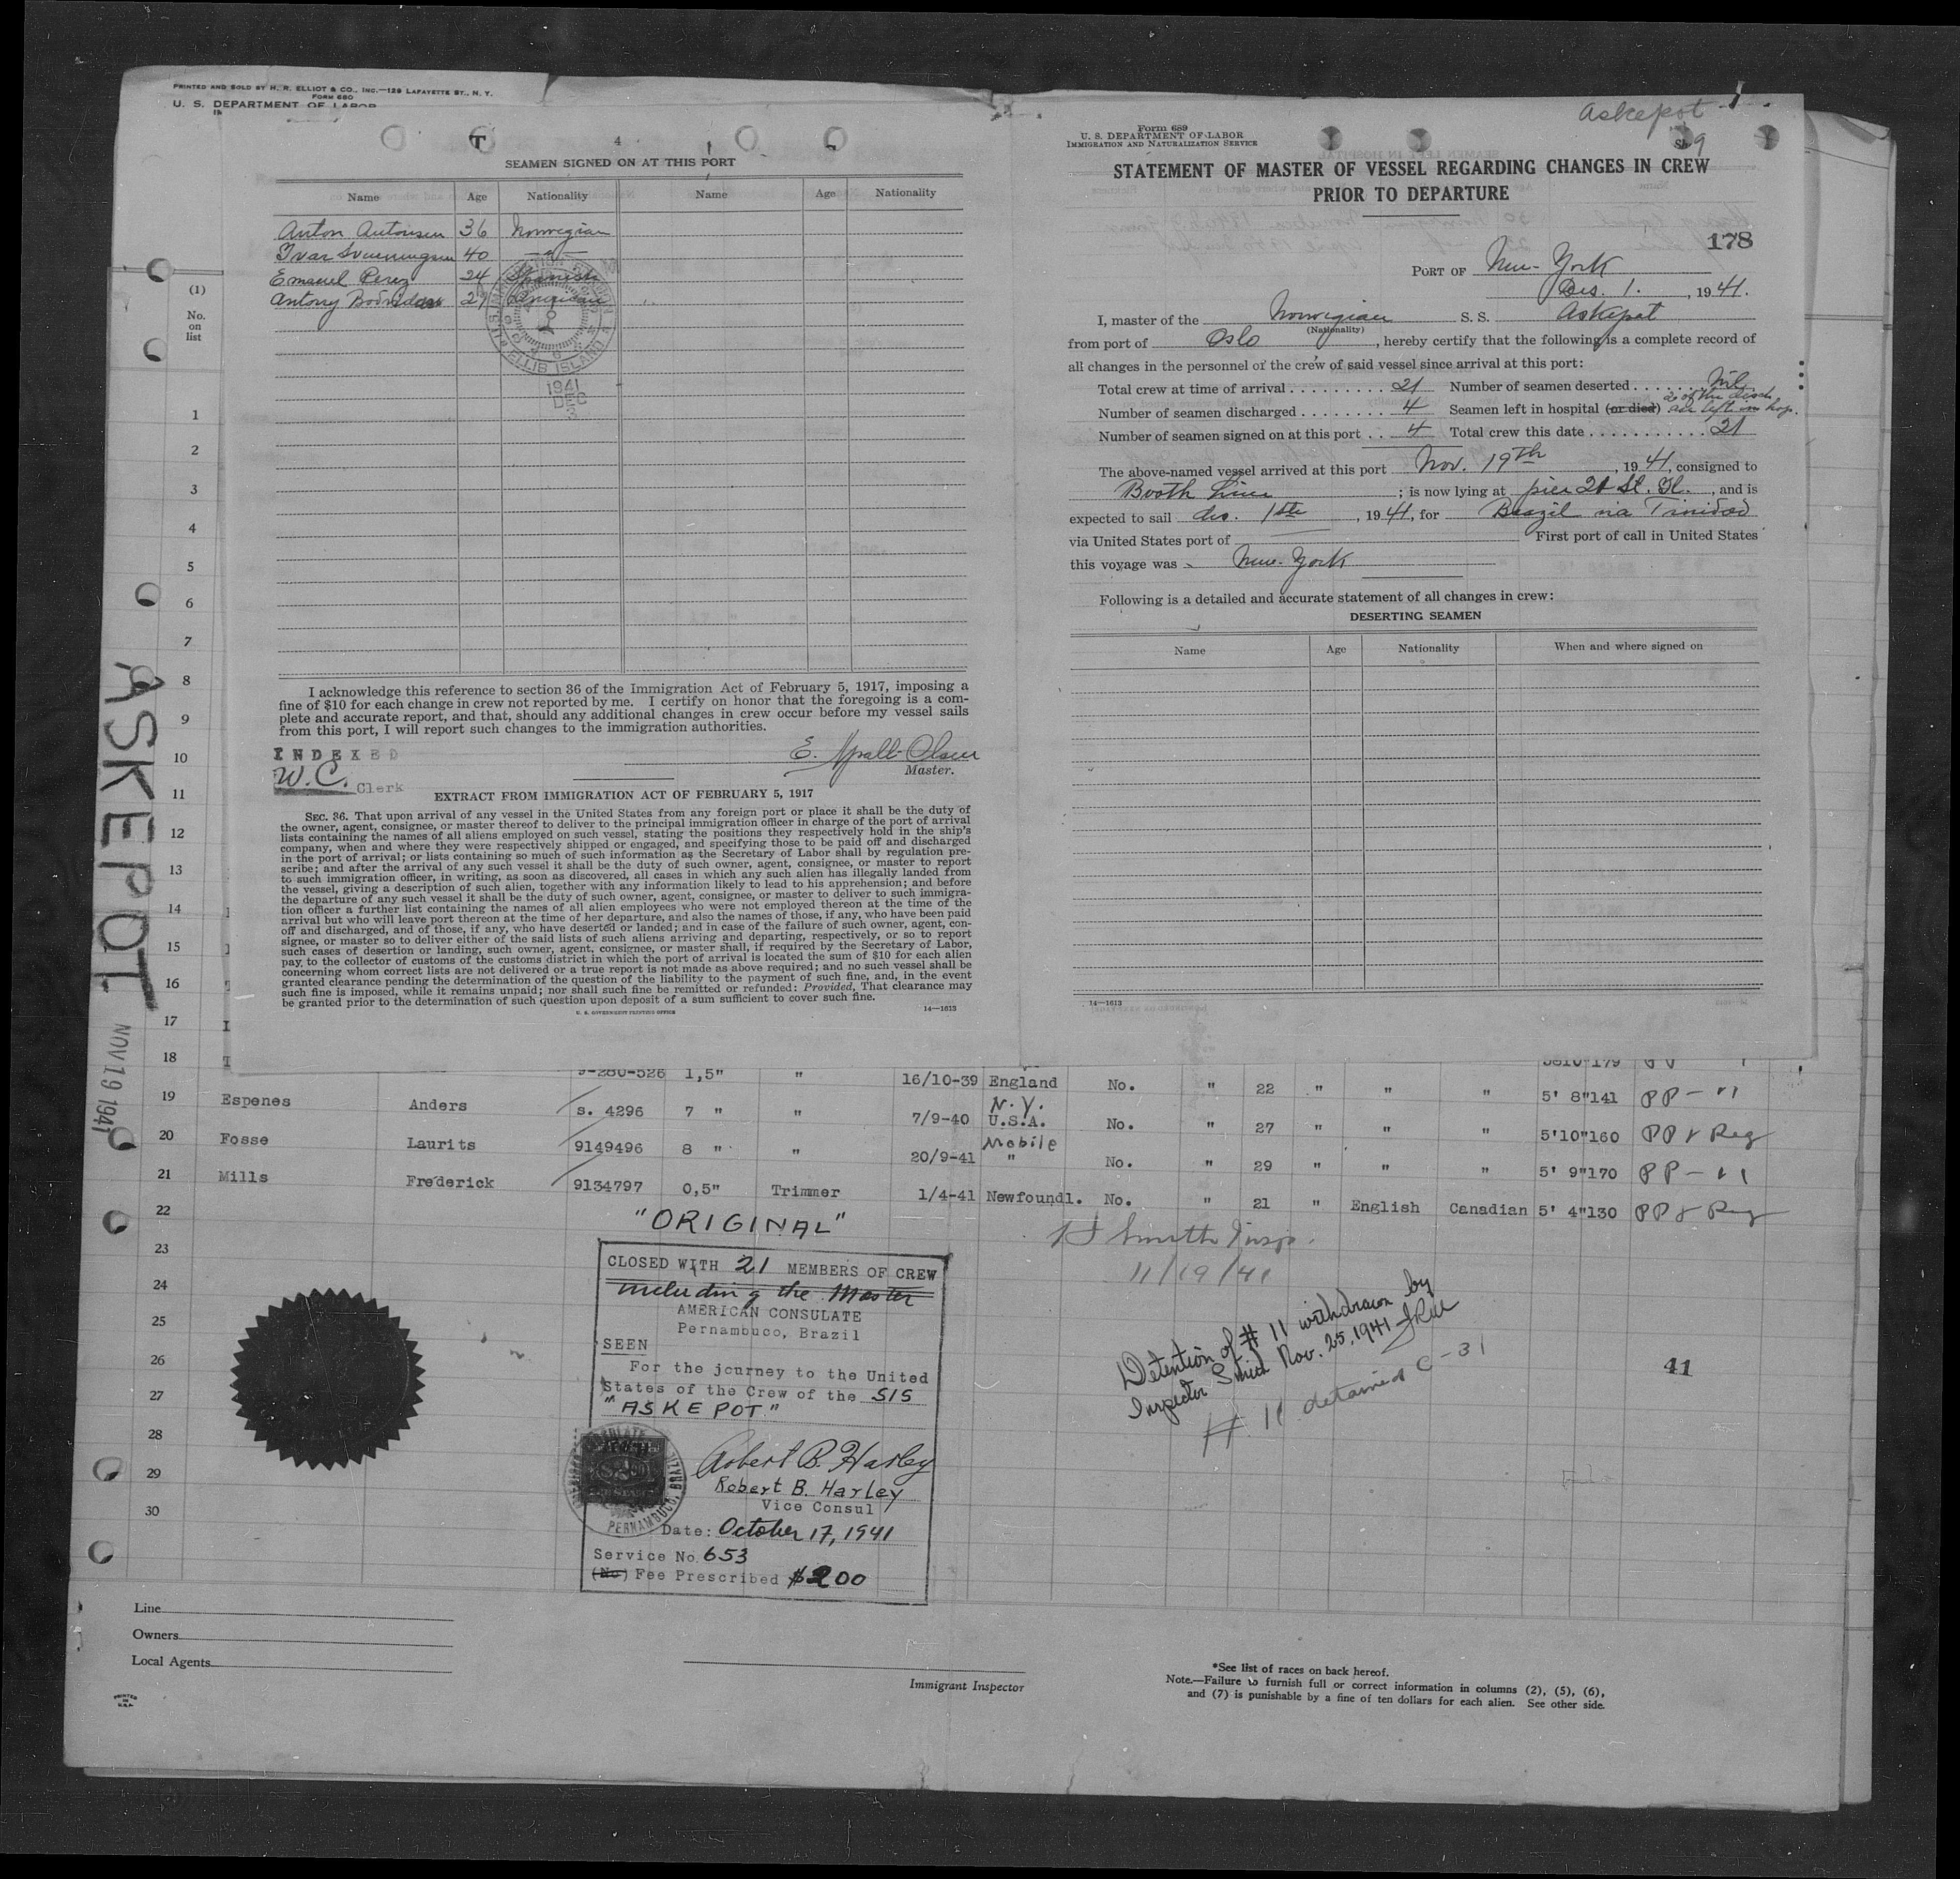 PRINTED AND SOLD BY H. R. ELLIOT & CO., INC.—129 LAFAYETTE ST., N. Y.
FORM 680
U. S. DEPARTMENT OF LABOR
T 4
SEAMEN SIGNED ON AT THIS PORT
Name Age Nationality Name Age Nationality
Anton Antonsen 36 Norwegian
Ivar Svenningsen 40 —"—
Emanuel Perez 24 Spanish
Antony 29 American
ELLIS ISLAND
1941
DEC
3
I acknowledge this reference to section 36 of the Immigration Act of February 5, 1917, imposing a
fine of $10 for each change in crew not reported by me. I certify on honor that the foregoing is a com-
plete and accurate report, and that, should any additional changes in crew occur before my vessel sails
from this port, I will report such changes to the immigration authorities.
INDEXED
W.C. Clerk
E. Olsen
Master.
EXTRACT FROM IMMIGRATION ACT OF FEBRUARY 5, 1917
SEC. 36. That upon arrival of any vessel in the United States from any foreign port or place it shall be the duty of
the owner, agent, consignee, or master thereof to deliver to the principal immigration officer in charge of the port of arrival
lists containing the names of all aliens employed on such vessel, stating the positions they respectively hold in the ship's
company, when and where they were respectively shipped or engaged, and specifying those to be paid off and discharged
in the port of arrival; or lists containing so much of such information as the Secretary of Labor shall by regulation pre-
scribe; and after the arrival of any such vessel it shall be the duty of such owner, agent, consignee, or master to report
to such immigration officer, in writing, as soon as discovered, all cases in which any such alien has illegally landed from
the vessel, giving a description of such alien, together with any information likely to lead to his apprehension; and before
the departure of any such vessel it shall be the duty of such owner, agent, consignee, or master to deliver to such immigra-
tion officer a further list containing the names of all alien employees who were not employed thereon at the time of the
arrival but who will leave port thereon at the time of her departure, and also the names of those, if any, who have been paid
off and discharged, and of those, if any, who have deserted or landed; and in case of the failure of such owner, agent, con-
signee, or master so to deliver either of the said lists of such aliens arriving and departing, respectively, or so to report
such cases of desertion or landing, such owner, agent, consignee, or master shall, if required by the Secretary of Labor,
pay to the collector of customs of the customs district in which the port of arrival is located the sum of $10 for each alien
concerning whom correct lists are not delivered or a true report is not made as above required; and no such vessel shall be
granted clearance pending the determination of the question of the liability to the payment of such fine, and, in the event
such fine is imposed, while it remains unpaid; nor shall such fine be remitted or refunded: Provided, That clearance may
be granted prior to the determination of such question upon deposit of a sum sufficient to cover such fine.
U. S. GOVERNMENT PRINTING OFFICE 14—1613
Askepot
9
Form 689
U. S. DEPARTMENT OF LABOR
IMMIGRATION AND NATURALIZATION SERVICE
STATEMENT OF MASTER OF VESSEL REGARDING CHANGES IN CREW
PRIOR TO DEPARTURE
178
PORT OF New-York
Des. 1., 1941.
I, master of the Norwegian S. S. Askepot
(Nationality)
from port of Oslo, hereby certify that the following is a complete record of
all changes in the personnel of the crew of said vessel since arrival at this port:
Total crew at time of arrival 21 Number of seamen deserted Nil
Number of seamen discharged 4 Seamen left in hospital (or died) as of the disch. are left in hop.
Number of seamen signed on at this port 4 Total crew this date 21
The above-named vessel arrived at this port Nov. 19th, 1941, consigned to
Booth Line; is now lying at pier 21 St. Gl., and is
expected to sail des. 1st, 1941, for Brazil via Trinidad
via United States port of First port of call in United States
this voyage was New-York
Following is a detailed and accurate statement of all changes in crew:
DESERTING SEAMEN
Name Age Nationality When and where signed on
14—1613
ASKEPOT. NOV 19 1941
(1)
No.
on
list
1
2
3
4
5
6
7
8
9
10
11
12
13
14
15
16
17
18
9-280-526 1,5" " 16/10-39 England No. " 22 " " " 5' 8"141 PP - "
19 Espenes Anders s. 4296 7 " " 7/9-40 N.Y. U.S.A. No. " 27 " " " 5'10"160 PP & Reg
20 Fosse Laurits 9149496 8 " " 20/9-41 Mobile " No. " 29 " " " 5' 9"170 PP - "
21 Mills Frederick 9134797 0,5" Trimmer 1/4-41 Newfoundl. No. " 21 " English Canadian 5' 4"130 PP & Reg
22
23
24
25
26
27
28
29
30
"ORIGINAL"
CLOSED WITH 21 MEMBERS OF CREW
including the Master
AMERICAN CONSULATE
Pernambuco, Brazil
SEEN
For the journey to the United
States of the Crew of the S/S
"ASKEPOT"
Robert B. Harley
Robert B. Harley
Vice Consul
PERNAMBUCO, BRAZIL
Date: October 17, 1941
Service No. 653
(No) Fee Prescribed $2.00
Smith Insp.
11/19/41
Detention of # 11 withdrawn by
Inspector Smith Nov. 25, 1941
# 11 detained C-31
41
Line
Owners
Local Agents
PRINTED
IN
U.S.A.
Immigrant Inspector
*See list of races on back hereof.
Note.—Failure to furnish full or correct information in columns (2), (5), (6),
and (7) is punishable by a fine of ten dollars for each alien. See other side.